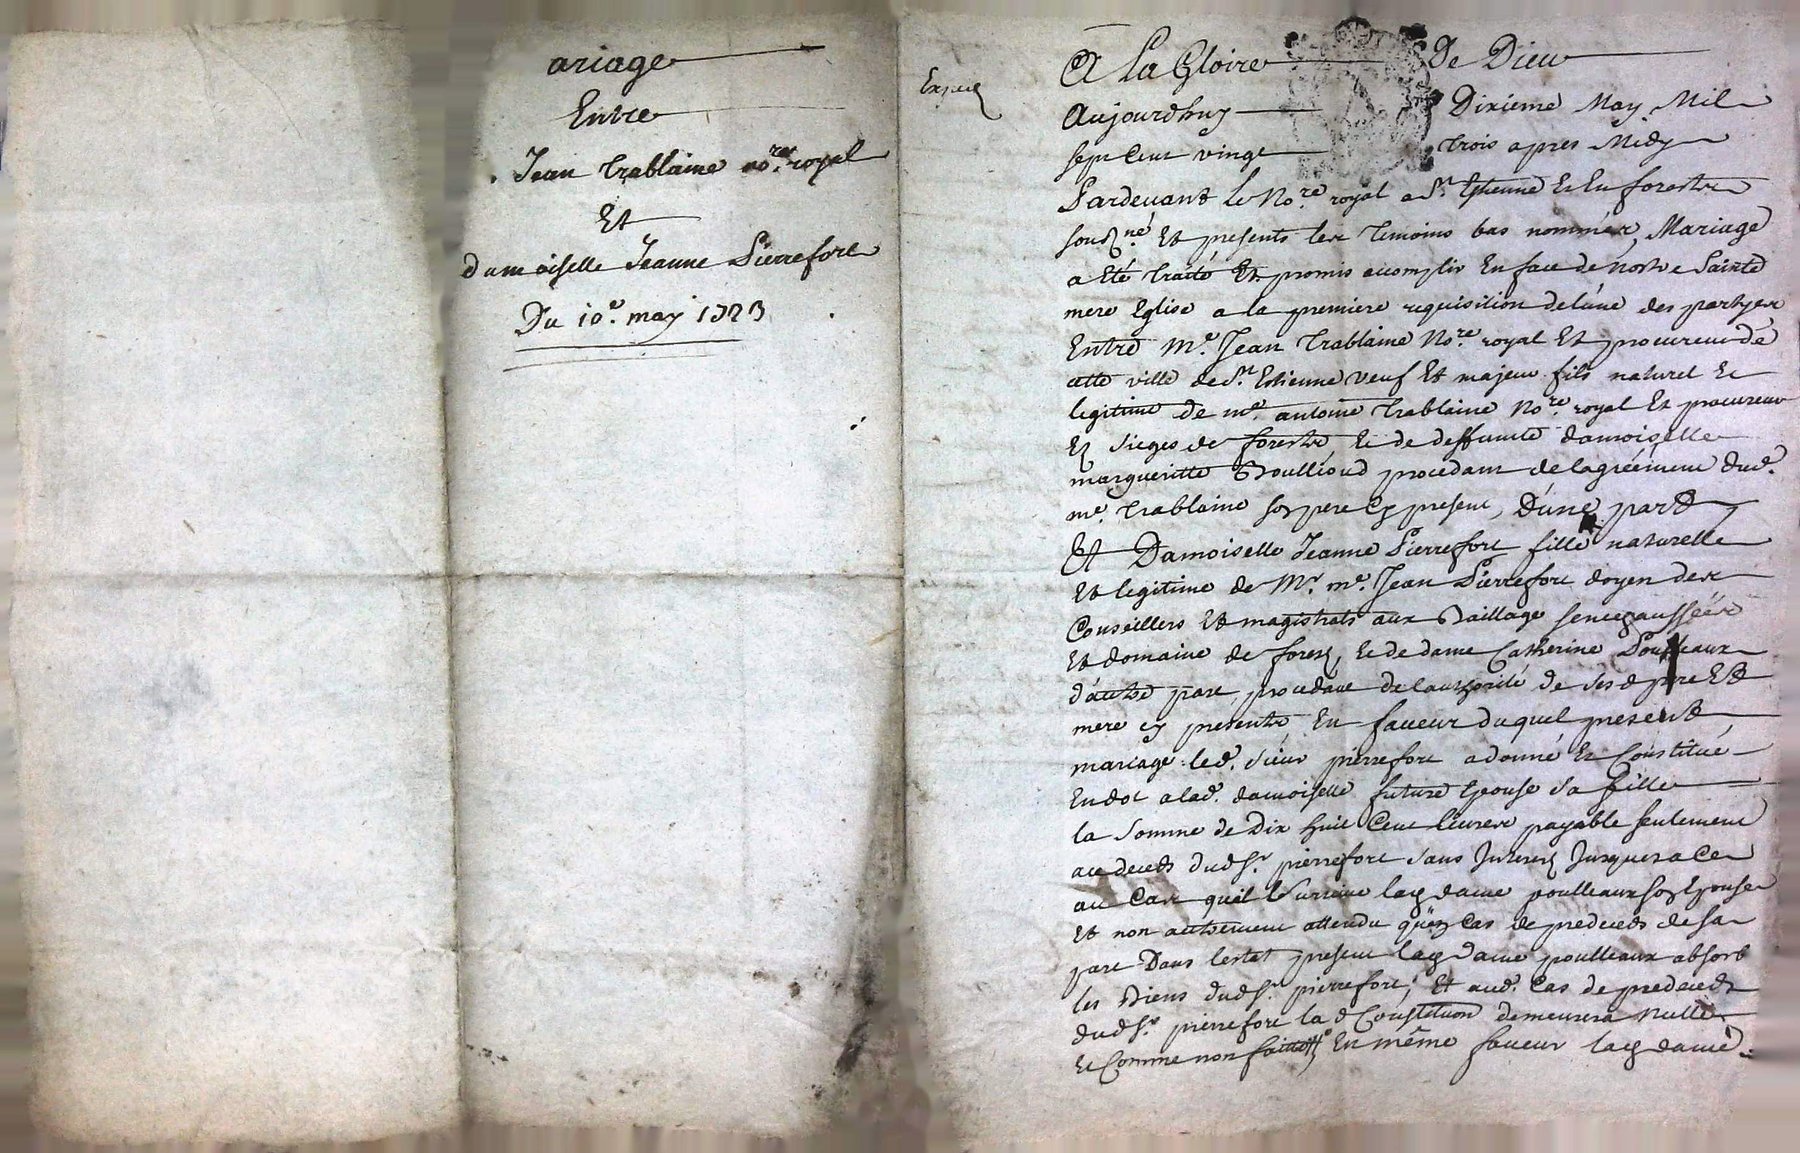 ariage
Entre
Jean Trablaine no.re royal
Et
damoiselle Jeanne Pierrefort
Du 10.e may 1723
A La Gloire De Dieu
Aujourdhuy Dixieme May Mil
sept Cent vingt trois apres Midy
Pardevant le No.re royal a St. Etienne Et En forestz
sousné Et presents les temoins bas nommés, Mariage
a été traité Et promis acomplir En face de nostre Sainte
mere Eglise a la premiere requisition de lúne des partyes
Entre Me. Jean Trablaine No.re royal Et procureur de
cette ville de St. Estienne veuf Et majeur fils naturel Et
legitime de me. antoine Trablaine No.re royal Et procureur
Es sieges de forestz Et de deffunte damoiselle
margueritte Boullioud procedant de lagréement dud.
me. trablaine son pere Cy present, Dúne part
Et Damoiselle Jeanne Pierrefort fille naturelle
Et legitime de Mr. me. Jean Pierrefort doyen des
Conseillers Et magistrats aux Baillage senechaussée
Et domaine de forest, Et de dame Catherine Poulleaux
dáutre part, procedant de lauthorité de sesd pere Et
mere cy presents En faveur duquel present
mariage led. sieur pierrefort a donné Et Constitué
En dot a lad. damoiselle future Epouse sa fille
la somme de Dix huit Cent livres payable seulement
au deceds dud sr. pierrefort sans Interest Jusques a Ce
au Cas quil survive lad dame poulleaux son Epouse
Et non autrement attendu quen Cas de predeceds de sa
part Dans lestat present lad dame poulleaux absorb
les Biens dud sr. pierrefort, Et aud. Cas de predeceds
dud sr. pierrefort lad Constitution demeurera nulle
Et Comme non faitte, En même faveur lad dame